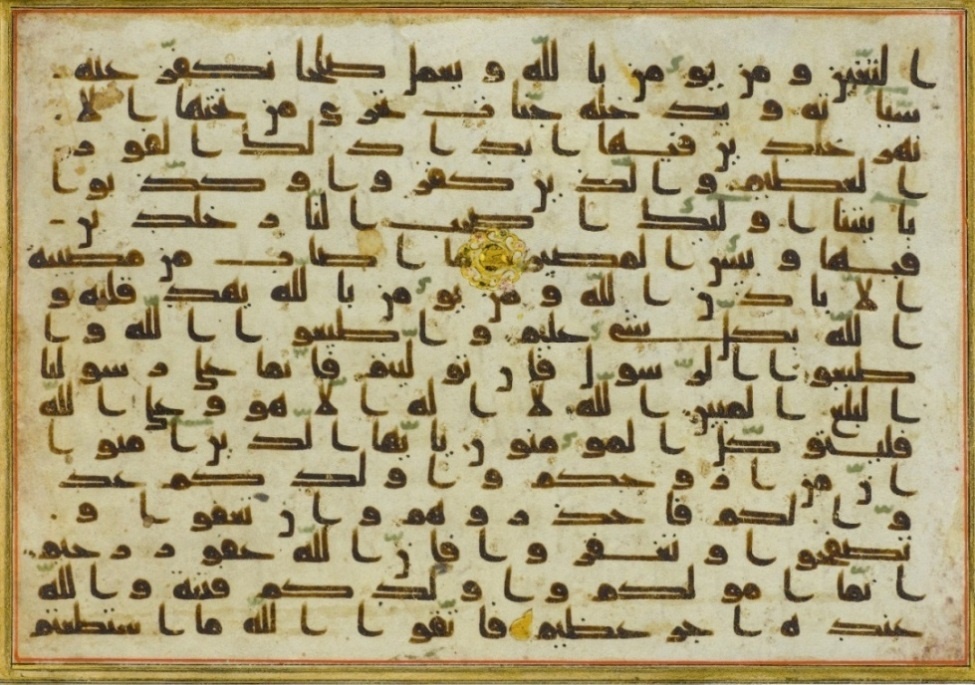 التغبن ومن يومن بالله ويعمل صلحا نكفر عنه
سياته وندخله جنت تجري من تحتها الا
نهر خلدين فيها ابدا ذلك الفوز
العظيم والذين كفروا وكذبوا
بايتنا اوليك اصحب النار خلدين
فيها وبيس المصير ما اصاب من مصيبة
الا باذن الله ومن يومن بالله يهد قلبه و
الله بكل شي عليم واطيعوا الله وا
طيعوا الرسول فان توليتم فانما على رسولنا
البلغ المبين الله لا اله الا هو وعلى الله
فليتوكل المومنون يايها الذين امنوا
ان من ازوجكم واولدكم عد
وا لكم فاحذروهم وان تعفوا و
تصفحوا وتغفروا فان الله غفور رحيم
انما امولكم واولدكم فتنة والله
عنده اجر عظيم فاتقوا الله ما استطعتم